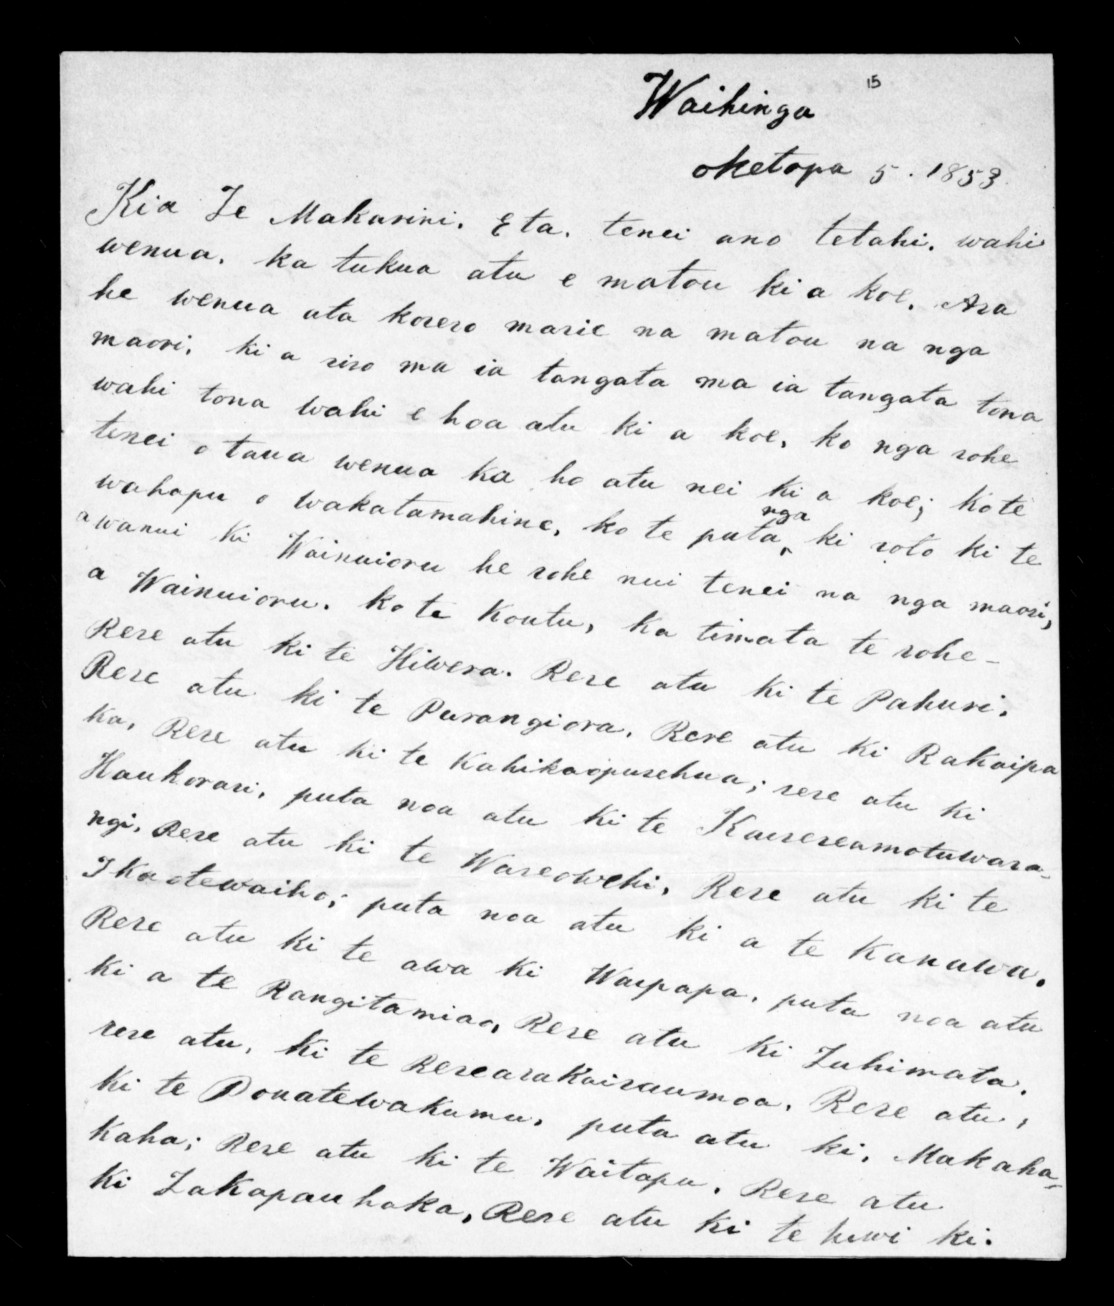 15
Waihinga
oketopa 5. 1853.
Kia Te Makarini. Eta. tenei ano tetahi. wahi
wenua. ka tukua atu e matou ki a koe. Ara
he wenua ata korero marie na matou na nga
maori. ki a riro ma ia tangata ma ia tangata tona
wahi tona wahi e hoa atu ki a koe, ko nga rohe
tenei o taua wenua ka ho atu nei ki a koe; ko te
wahapu o wakatamahine, ko te puta nga ki roto ki te
awanui ki Wainuioru he rohe nui tenei na nga maori,
a Wainuioru. ko te Koutu, ka timata te rohe-
Rere atu ki te Hiwera. Rere atu ki te Pahuri.
Rere atu ki te Purangiora. Rere atu ki Rakaipa
ka. Rere atu ki te Kahikaopurehua; rere atu ki
Haukorari, puta noa atu ki te Kaurereamotuwara-
ngi. Rere atu ki te Wareowehi. Rere atu ki te
Ikaotewaiho; puta noa atu ki a te Kanawa.
Rere atu ki te awa ki Waipapa. puta noa atu
ki a te Rangitamiao, Rere atu ki Tuhimata.
rere atu, ki te Rerearakairaumoa. Rere atu,
ki te Pouatewakamu. puta atu ki. Makaha-
kaha; Rere atu ki te Waitapu. Rere atu
ki Takapauhaka, Rere atu ki te hiwi ki.